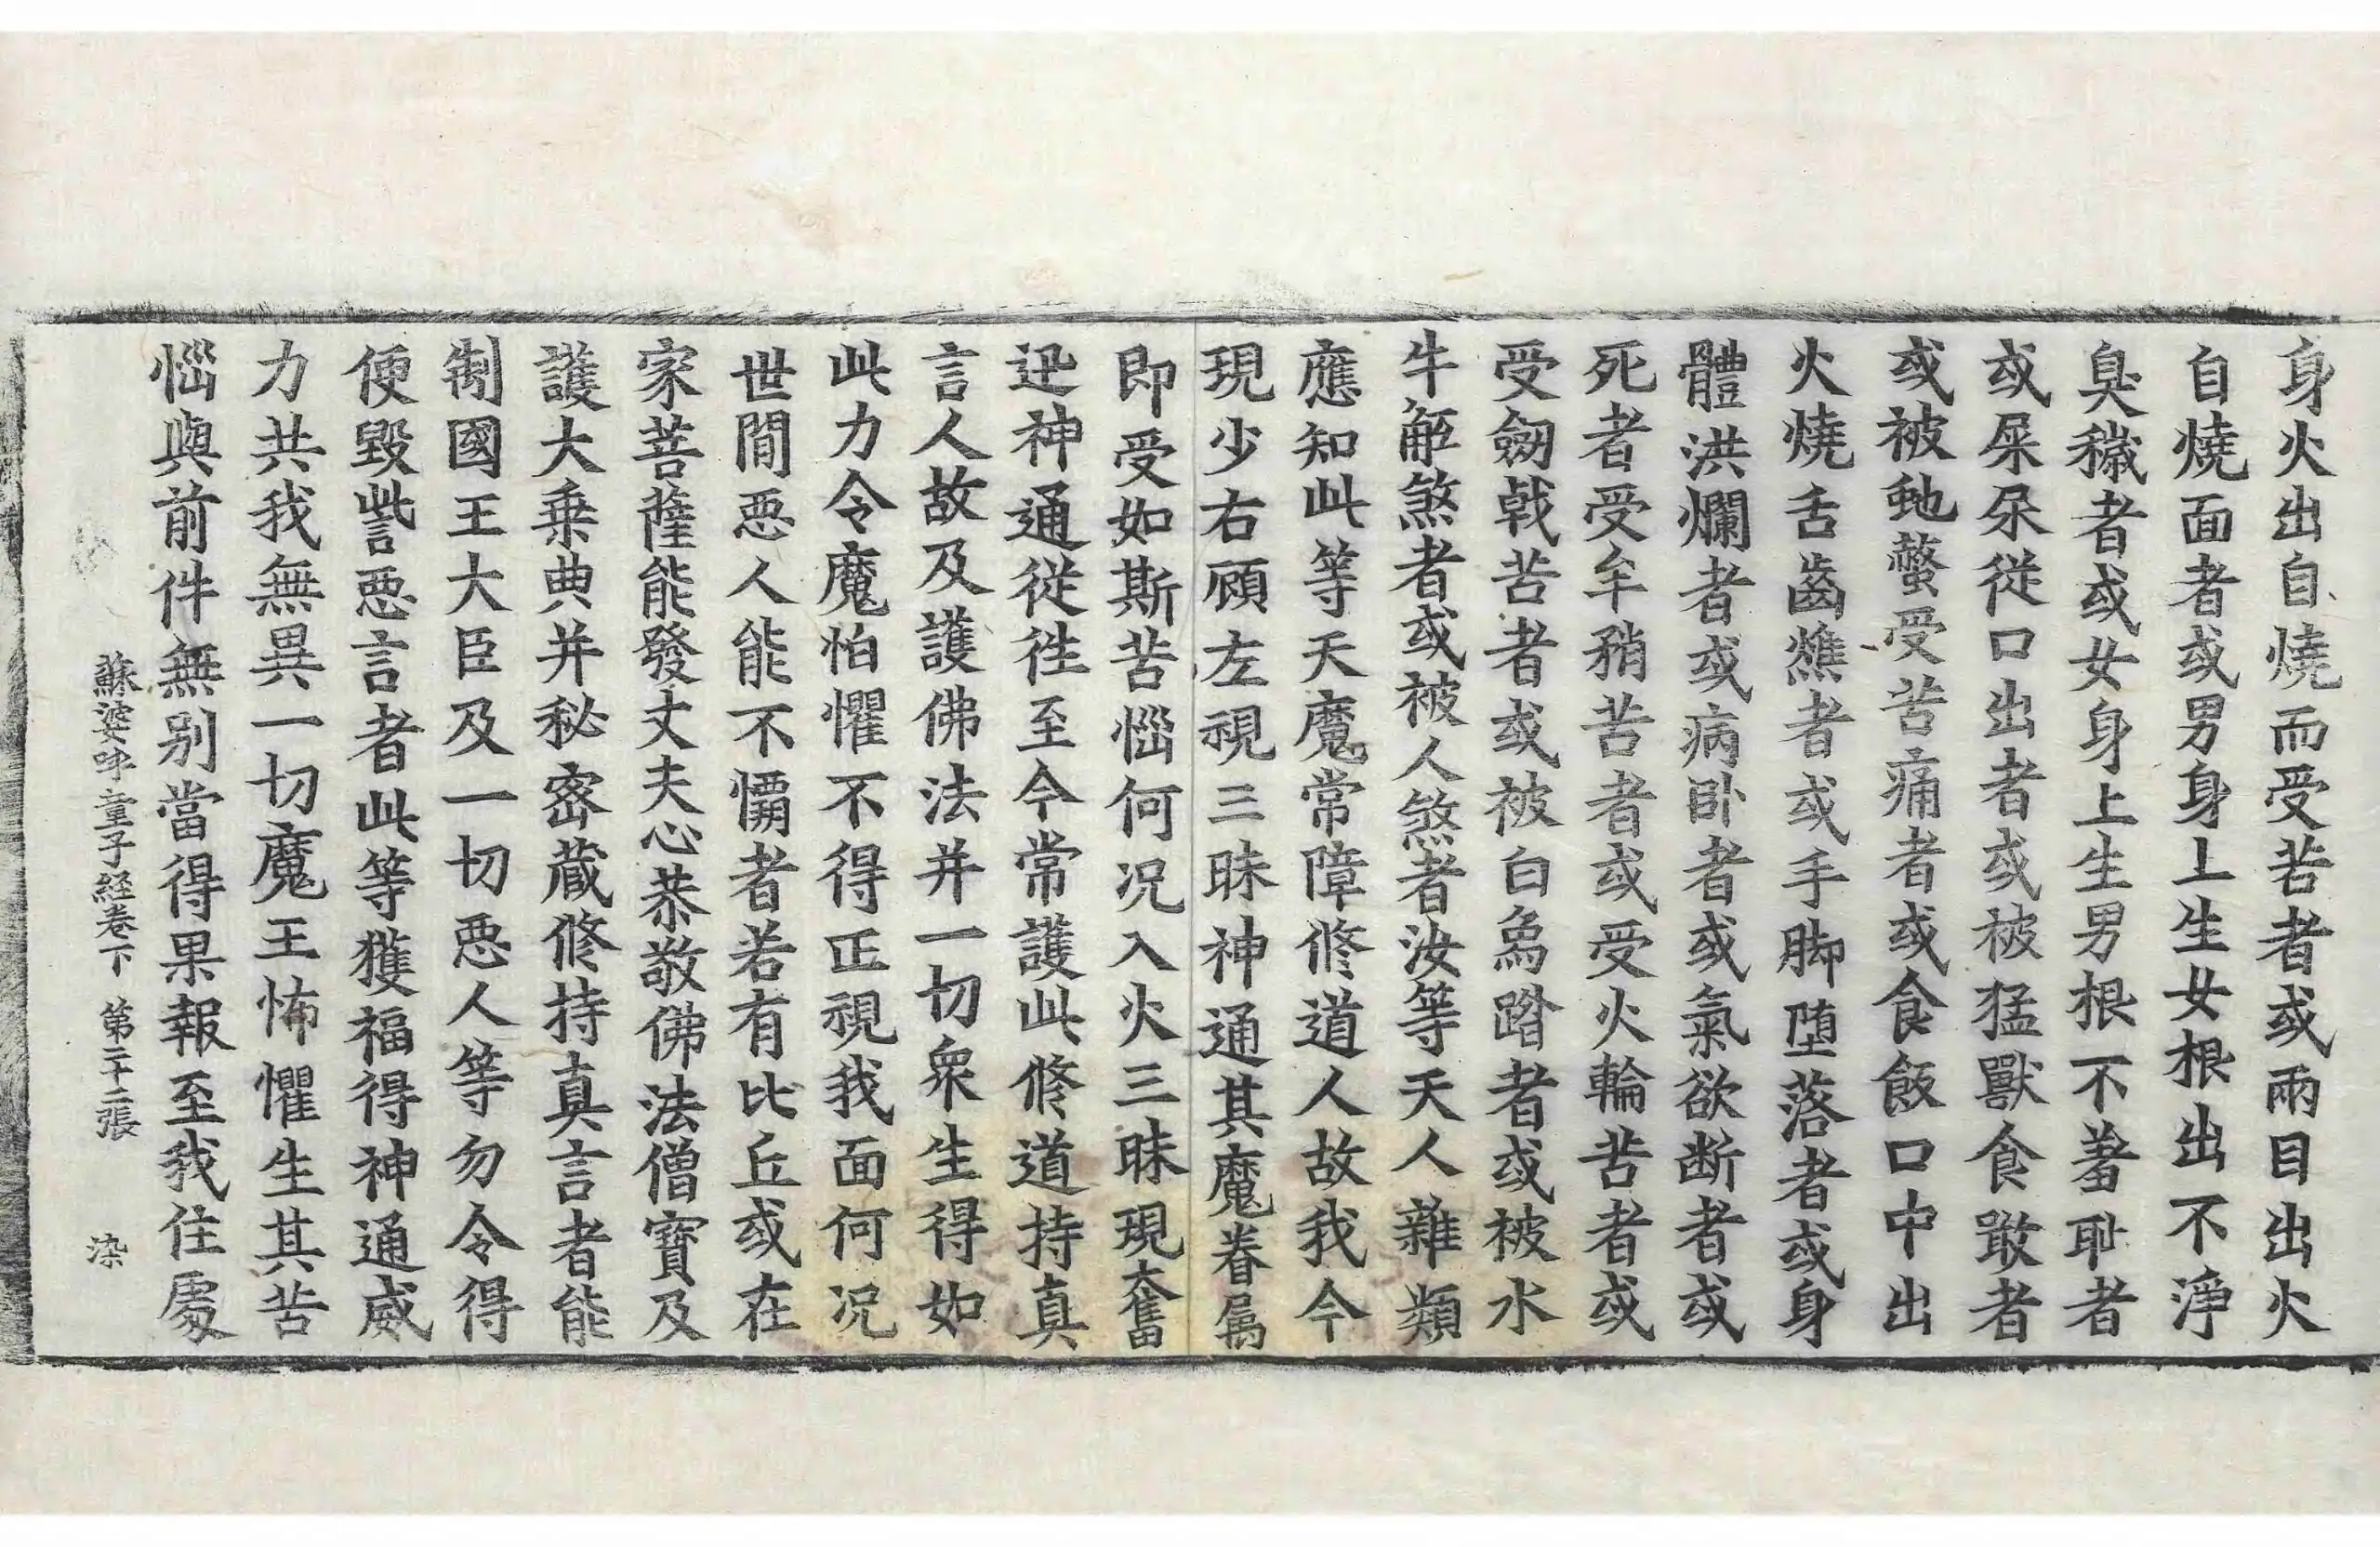 身火出自燒而受苦者或兩目出火
自燒面者或男身上生女根出不淨
臭穢者或女身上生男根不羞耻者
或屎尿從口出者或被猛獸食噉者
或被虵螫受苦痛者或食飯口中出
火燒舌齒燋者或手脚堕落者或身
體洪爛者或病卧者或氣欲断者或
死者受牟矟苦者或受火輪苦者或
受劒戟苦者或被白象踏者或被水
牛觝煞者或被人煞者汝等天人雜類
應知此等天魔常障修道人故我今
現少右顾左視三昧神通其魔眷属
即受如斯苦惱何况入火三昧現奮
迅神通從徃至今常護此修道持真
言人故及護佛法并一切衆生得如
此力令魔怕懼不得正視我面何况
世間惡人能不懼者若有比丘或在
家菩薩能發丈夫心恭敬佛法僧寶及
護大乗典并秘密蔵修持真言者能
制國王大臣及一切惡人等勿令得
便毀訾惡言者此等獲福得神通威
力共我無異一切魔王怖懼生其苦
惱與前件無别當得果報至我住處
蘇婆呼童子経卷下　第二十二張　染